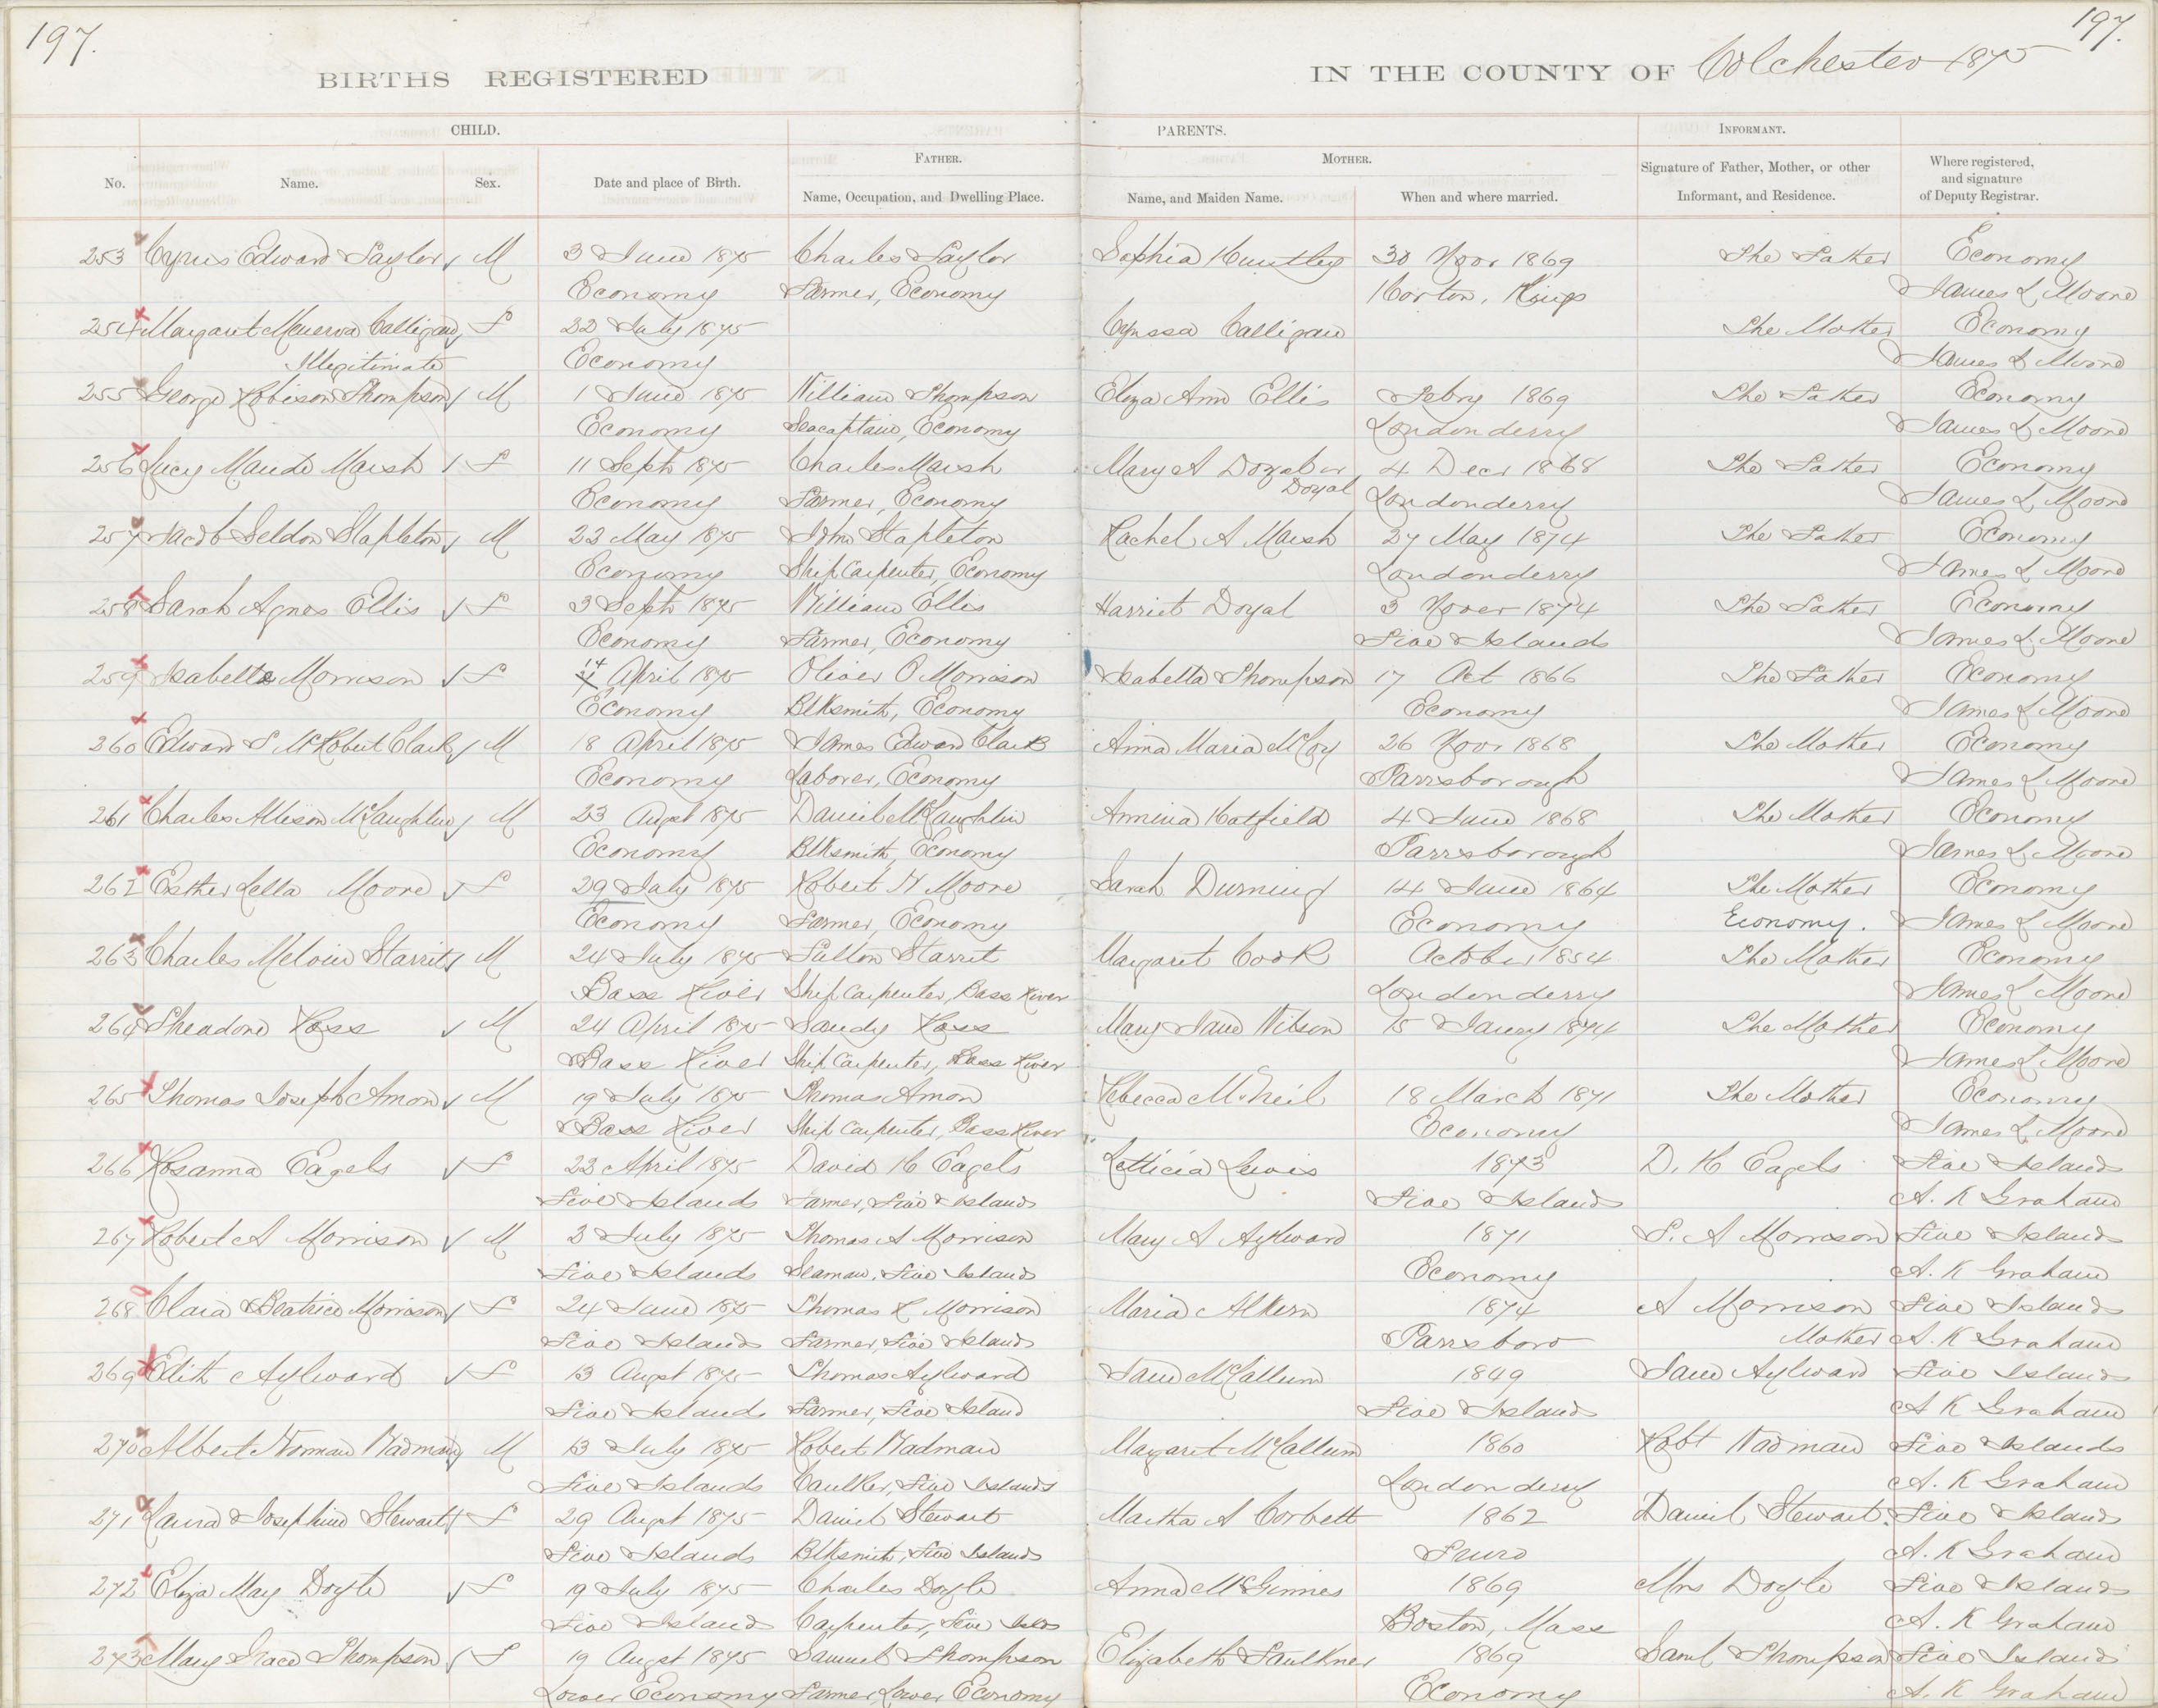 197.
197.
BIRTHS REGISTERED
IN THE COUNTY OF Colchester 1875
CHILD.
PARENTS.
INFORMANT.
FATHER.
MOTHER.
No.
Name.
Sex.
Date and place of Birth.
Name, Occupation, and Dwelling Place.
Name, and Maiden Name.
When and where married.
Signature of Father, Mother, or other
Informant, and Residence.
Where registered,
and signature
of Deputy Registrar.
253 Cyrus Edward Taylor M 3 June 1875 Charles Taylor Sophia Huntley 30 Novr 1869 The Father Economy
Economy Farmer, Economy Horton, Kings James L Moore
254 Margaret Menerva Calligan F 22 July 1875 Calligan The Mother Economy
Illegitimate Economy James L Moore
255 George Robison Thompson M 1 June 1875 William Thompson Eliza Ann Ellis Febry 1869 The Father Economy
Economy Seacaptain, Economy Londonderry James L Moore
256 Lucy Maude Marsh F 11 Sept 1875 Charles Marsh Mary A 4 Decr 1868 The Father Economy
Doyal
Economy Farmer, Economy Londonderry James L Moore
257 Jacob Seldon Stapleton M 22 May 1875 John Stapleton Rachel A Marsh 27 May 1874 The Father Economy
Economy Ship Carpenter, Economy Londonderry James L Moore
258 Sarah Agnes Ellis F 3 Sept 1875 William Ellis Harriet Doyal 3 Nover 1874 The Father Economy
Economy Farmer, Economy Five Islands James L Moore
259 Isabella Morrison F 14 April 1875 Oliver O Morrison Isabella Thompson 17 Oct 1866 The Father Economy
Economy Blksmith, Economy Economy James L Moore
260 Edward S McRobert Clark M 18 April 1875 James Edward Clark Anna Maria McCoy 26 Novr 1868 The Mother Economy
Economy Laborer, Economy Parrsborough James L Moore
261 Charles Allison McLaughlin M 23 Augst 1875 Daniel McLaughlin Annina Hatfield 4 June 1868 The Mother Economy
Economy Blksmith, Economy Parrsborough James L Moore
262 Esther Lella Moore F 29 July 1875 Robert N Moore Sarah Durning 14 June 1864 The Mother Economy
Economy Farmer, Economy Economy Economy. James L Moore
263 Charles Melvin Starrit M 24 July 1875 Fulton Starrit Margaret Cook October 1854 The Mother Economy
Bass River Ship Carpenter, Bass River Londonderry James L Moore
264 Theadore Ross M 24 April 1875 Sandy Ross Mary Jane Wilson 15 Janry 1874 The Mother Economy
Bass River Ship Carpenter, Bass River James L Moore
265 Thomas Joseph Amon M 19 July 1875 Thomas Amon Rebecca McNeil 18 March 1871 The Mother Economy
Bass River Ship Carpenter, Bass River Economy James L Moore
266 Rosanna Eagels F 22 April 1875 David H Eagels Letticia Lewis 1873 D. H Eagels Five Islands
Five Islands Farmer, Five Islands Five Islands A. K Graham
267 Robert A Morrison M 3 July 1875 Thomas A Morrison Mary A Aylward 1871 T. A Morrison Five Islands
Five Islands Seaman, Five Islands Economy A. K Graham
268 Clara Beatrice Morrison F 24 June 1875 Thomas R Morrison Maria Alkern 1874 A Morrison Five Islands
Five Islands Farmer, Five Islands Parrsboro Mother A. K Graham
269 Edith Aylward F 13 Augst 1875 Thomas Aylward Jane McCallum 1849 Jane Aylward Five Islands
Five Islands Farmer, Five Island Five Islands A K Graham
270 Albert Norman Wadman M 13 July 1875 Robert Wadman Margaret McCallum 1860 Robt Wadman Five Islands
Five Islands Caulker, Five Islands Londonderry A. K Graham
271 Laura Josephine Stewart F 29 Augst 1875 Daniel Stewart Martha A Corbett 1862 Daniel Stewart. Five Islands
Five Islands Blksmith, Five Islands Truro A. K Graham
272 Eliza May Doyle F 19 July 1875 Charles Doyle Anna McGinnes 1869 Mrs Doyle Five Islands
Five Island Carpenter, Five Islds Boston, Mass A. K Graham
273 Mary Grace Thompson F 19 Augst 1875 Samuel Thompson Elizabeth Faulkner 1869 Saml Thompson Five Islands
Lower Economy Farmer, Lower Economy Economy A. K Graham